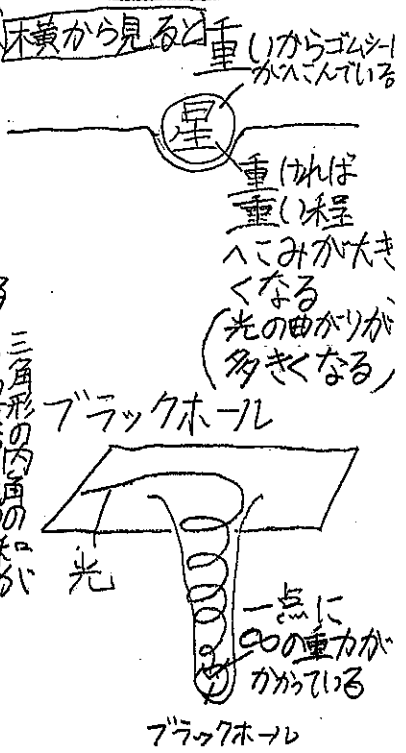 横から見ると
重いからゴムシート
がへこんでいる
星
重ければ
重い程
へこみが大き
くなる
(光の曲がりが
多きくなる)
三角形の内角の和が
ブラックホール
光
一点に
∞の重力が
かかっている
ブラックホール